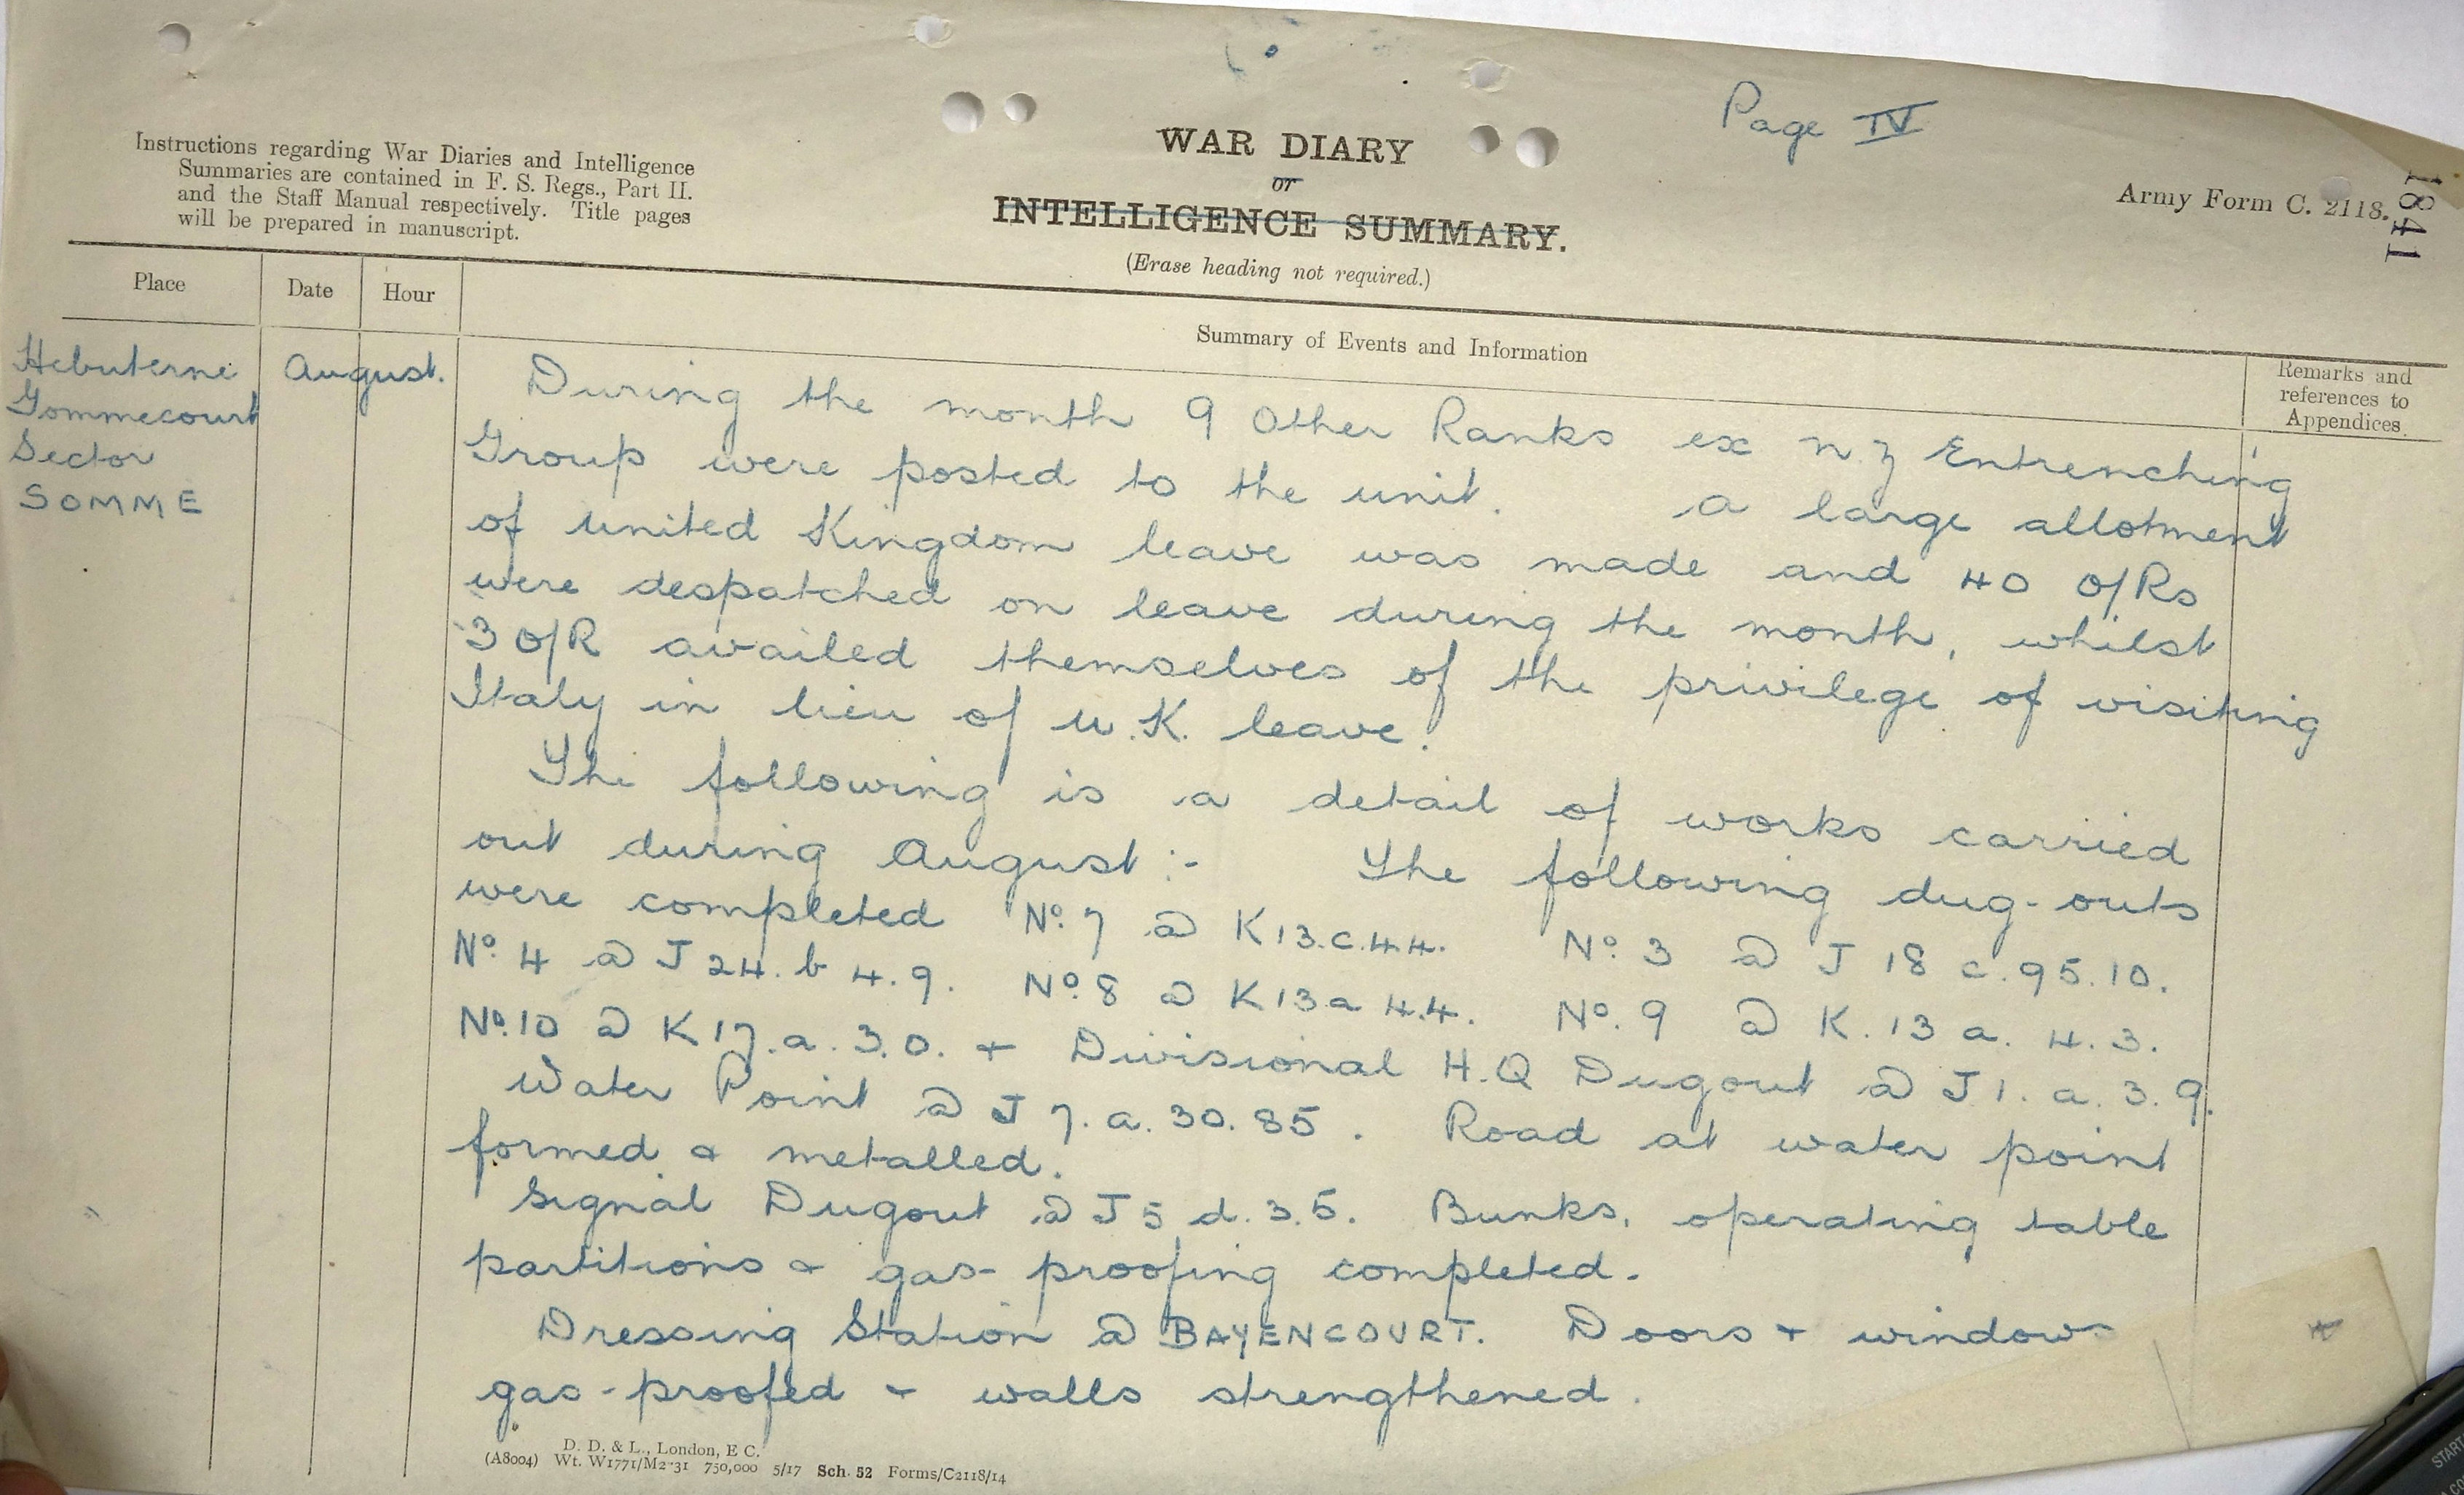 Page IV
Instructions regarding War Diaries and Intelligence
Summaries are contained in F. S. Regs., Part II.
and the Staff Manual respectively. Title pages
will be prepared in manuscript.
WAR DIARY
or
INTELLIGENCE SUMMARY.
(Erase heading not required.)
Army Form C. 2118.
1841
Place
Date
Hour
Summary of Events and Information
Remarks and
references to
Appendices
Hebuterne
Gommecourt
Sector
SOMME
August.
During the month 9 Other Ranks ex N Z Entrenching
Group were posted to the unit. A large allotment
of United Kingdom leave was made and 40 O/Rs
were despatched on leave during the month, whilst
3 O/R availed themselves of the privilege of visiting
Italy in lieu of U.K. leave.
The following is a detail of works carried
out during August :- The following dug-outs
were completed No. 7 @ K13.c.4.4. No. 3 @ J 18 c.95.10.
No. 4 @ J 24. b 4.9. No. 8 @ K13a 4.4. No. 9 @ K. 13 a. 4.3.
No. 10 @ K 17.a.3.0. + Divisional H.Q Dugout @ J 1. a. 3. 9.
Water Point @ J 7. a. 30. 85. Road at water point
formed & metalled.
Signal Dugout @ J 5 d. 3.5. Bunks, operating table
partitions & gas-proofing completed.
Dressing Station @ BAYENCOURT. Doors + windows
gas-proofed + walls strengthened.
D. D. & L., London, E C.
(A8004) Wt. W1771/M2 31 750,000 5/17 Sch. 52 Forms/C2118/14
START